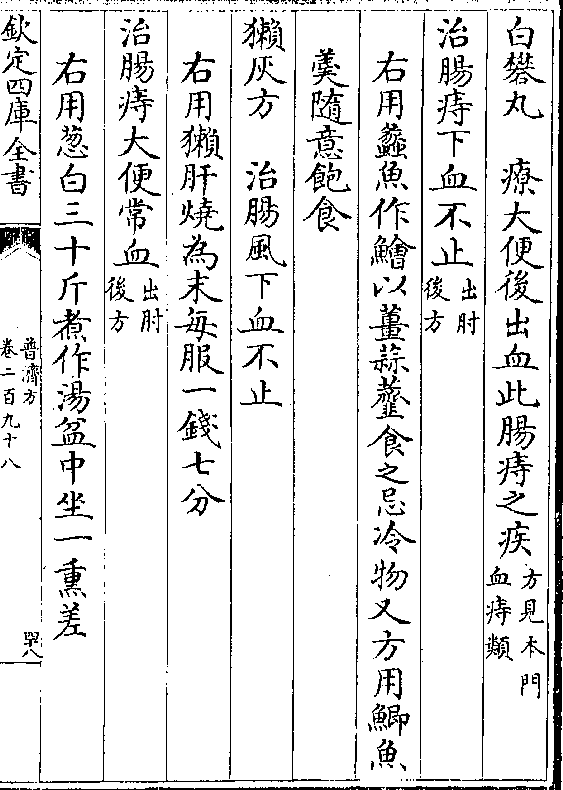 白礬丸　療大便後出血此腸痔之疾方見本門血痔類
治腸痔下血不止出肘後方
右用蠡魚作鱠以薑蒜虀食之忌冷物又方用鯽魚
羹隨意飽食
獺灰方　治腸風下血不止
右用獺肝燒為末每服一錢七分
治腸痔大便常血出肘後方
右用葱白三十斤煮作湯盆中坐一熏差
欽定四庫全書
普濟方
卷二百九十八